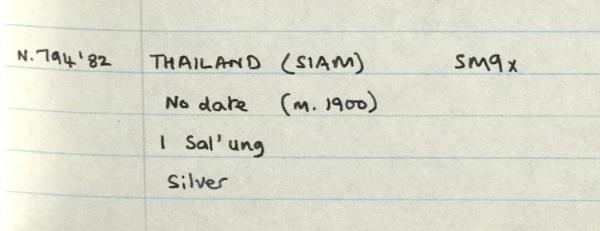 N.794'82 THAILAND (SIAM) SM9x
No date (m. 1900)
1 Sal'ung
Silver